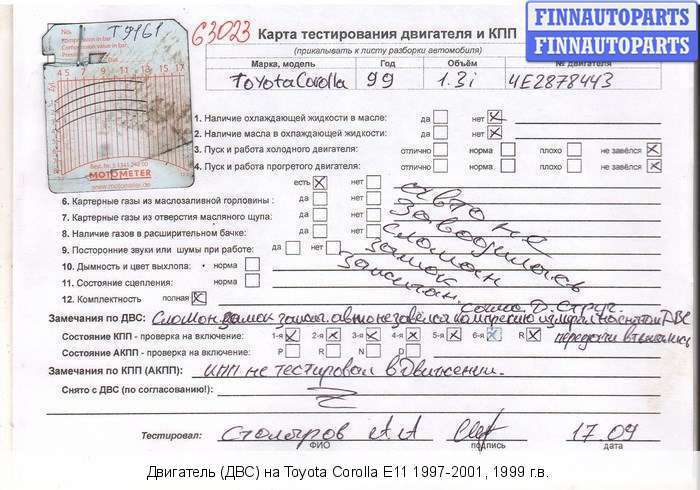 FINNAUTOPARTS
FINNAUTOPARTS
No. T9161
63023
Карта тестирования двигателя и КПП
(прикалывать к листу разборки автомобиля)
Compression in bar
Compression value in bar
Pression en bar
4 5 7 9 11 13 15 17
Марка, модель Год Объём № двигателя
Toyota Corolla 99 1.3i 4E2878443
MOTOMETER
www.motometer.de
1. Наличие охлаждающей жидкости в масле: да нет
2. Наличие масла в охлаждающей жидкости: да нет
3. Пуск и работа холодного двигателя: отлично норма плохо не завёлся
4. Пуск и работа прогретого двигателя: отлично норма плохо не завёлся
есть нет
6. Картерные газы из маслозаливной горловины: да нет
7. Картерные газы из отверстия масляного щупа: да нет
8. Наличие газов в расширительном бачке: да нет
9. Посторонние звуки или шумы при работе: да нет
10. Дымность и цвет выхлопа: норма
11. Состояние сцепления: норма
12. Комплектность полная
Авто не
заводилась
сломан
замок
зажиган.
Замечания по ДВС: Сломан замок зажиг. авто не завёлся компрессию измерял на снятом ДВС
Состояние КПП - проверка на включение: 1-я 2-я 3-я 4-я 5-я 6-я R передачи включались
Состояние АКПП - проверка на включение: P R N D
Замечания по КПП (АКПП): КПП не тестировал в движении.
Снято с ДВС (по согласованию!):
Тестировал: Столяров А.А 17.09
ФИО подпись дата
Двигатель (ДВС) на Toyota Corolla E11 1997-2001, 1999 г.в.